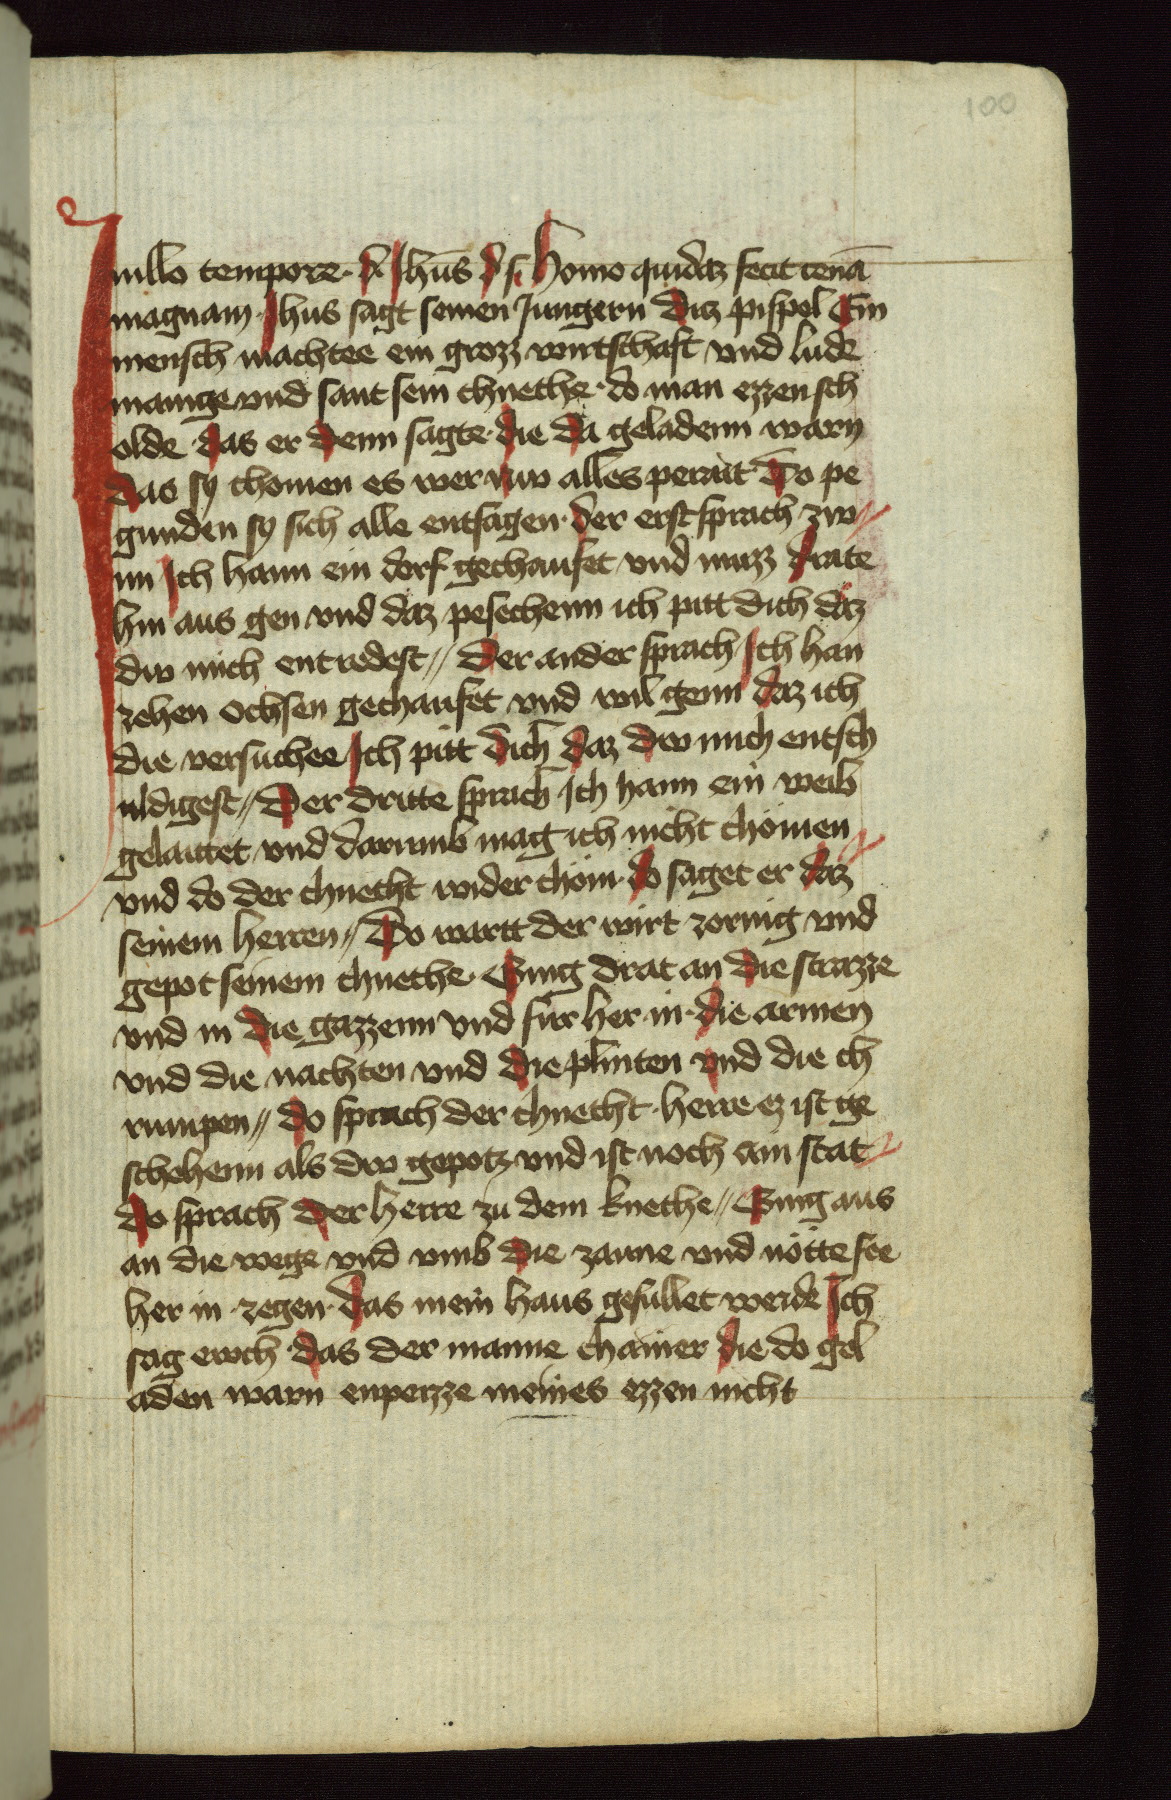 100
In illo tempore · d̄ Jhūs d̄ s. Homo quidaz fecit cenā
magnam · Jhus sagt seinen Jungern diz pispel Ein
mensch machtee ein grozz wirtschaft vnd lude
mainge vnd sant sein chnethe · do man ezzen sch
olde · das er denn sagte · die da geladenn warn
das sy chomen es wer nw alles perait Do pe
gunden sy sich alle entsagen · der erst sprach zw
im Ich hann ein dorf gechaufet vnd muzz drate
hin aus gen vnd daz pesechenn ich pitt dich daz
dw mich entredest // Der ander sprach Ich han
zehen ochsen gechaufet vnd wil genn daz ich
die versuchee Ich pitt dich daz dw mich entsch
uldigest // Der dritte sprach Ich hann ein weib
gelaitet vnd darumb mag ich nicht chömen
vnd do der chnecht wider chöm · do saget er daz
seinem herren // Do wartt der wirt zornig vnd
gepot seinem chnethe · Ging drat an die strazze
vnd in die gazzenn vnd für her · in · die armen
vnd die nachten vnd die plinten vnd die ch
rumpen // do sprach der chnecht · herre ez ist ge
schehenn als dw gepotz vnd ist noch ain stat
do sprach der herre zu dem knethe // Ging aus
an die wege vnd vmb die zaune vnd nötte see
her in · zegen · das mein haus gefullet werde Ich
sag ewch das der manne chainer die do gel
aden warn enperzze meines ezzen nicht